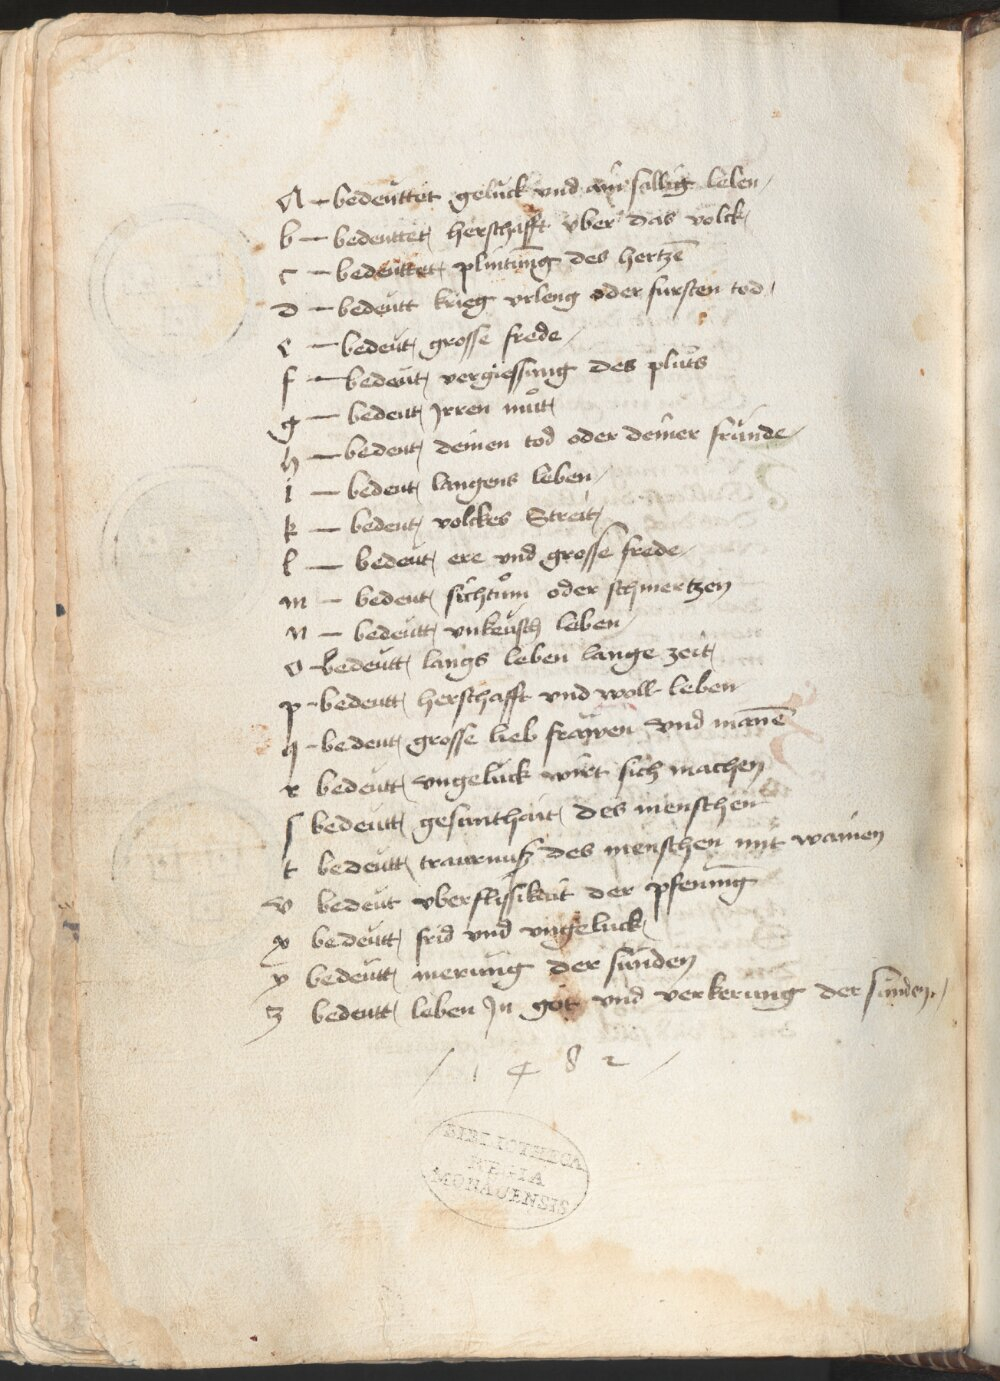 A – bedeuttet geluck vnd ain sallig leben
b – bedeuttet herschafft vber das volck
c – bedeuttet plintung des hertzē
d – bedeutt krieg vrleug oder fursten tod
e – bedeut grosse frede
f – bedeut vergiessung des pluts
g – bedeut Jrren mut
h – bedeut deinen tod oder deiner frunde
i – bedeut langens leben
k – bedeut volckes Streit
l – bedeut ere vnd grosse frede
m – bedeut sichtum oder schmertzen
n – bedeutt vnkeusch leben
o bedeutt langs leben lange zeit
p bedeutt herschafft vnd woll leben
q bedeut grosse lieb frawen vnd manē
r bedeutt vngeluck wirt sich machen
s bedeutt gesunthait des menschen
t bedeutt traurnuß des menschen mit wainen
v bedeut vberflissikait der pfening
x bedeutt frid vnd vngeluck
y bedeutt merung der sunden
z bedeutt leben Jn got vnd verkerung der sunden
1482
BIBLIOTHECA
REGIA
MONACENSIS